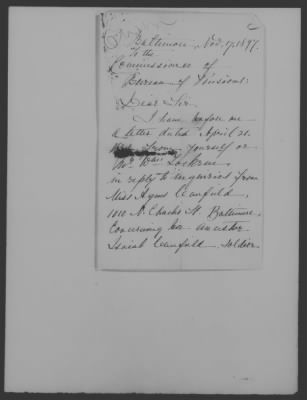 Baltimore, Nov. 17, 1897.
To the
Commissioner of
Bureau of Pensions:
Dear Sir:
I have before me
a letter dated April 21.
from yourself or
in reply to inquiries from
Miss Agnes Canfield,
1010 N. Charles St. Baltimore,
Concerning her ancestor
Isaiah Canfield, soldier